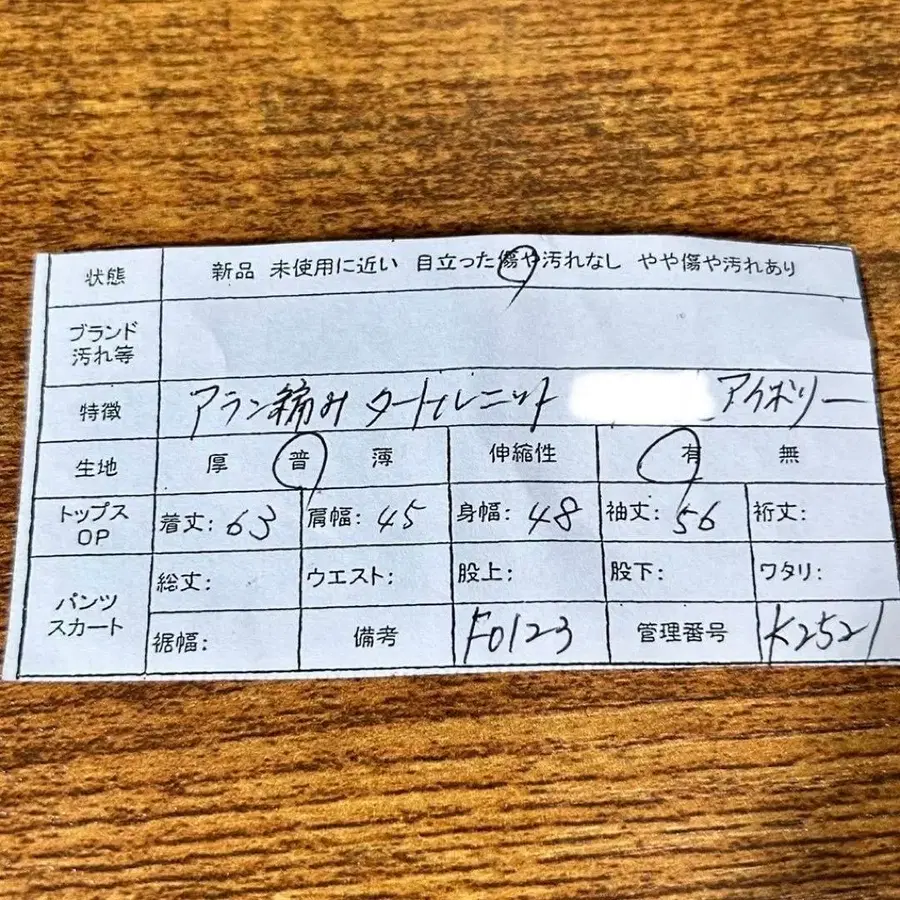 状態 新品 未使用に近い 目立った傷や汚れなし やや傷や汚れあり
ブランド
汚れ等
特徴 アラン編み タートルニット アイボリー
生地 厚 普 薄 伸縮性 有 無
トップス
OP
着丈: 63 肩幅: 45 身幅: 48 袖丈: 56 裄丈:
パンツ
スカート
総丈: ウエスト: 股上: 股下: ワタリ:
裾幅: 備考 F0123 管理番号 K2521